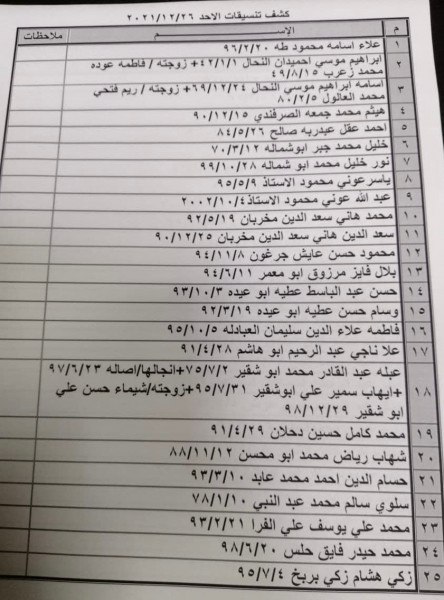 كشف تنسيقات الاحد ٢٠٢١/١٢/٢٦
م الإســـــم ملاحظات
١ علاء اسامه محمود طه ٩٦/٢/٢٠
٢ ابراهيم موسي احميدان النحال ٤٢/١/١+ زوجته / فاطمه عوده
محمد زعرب ٤٩/٨/١٥
٣ اسامه ابراهيم موسي النحال ٦٩/١٢/٢٤+ زوجته / ريم فتحي
محمد العالول ٨٠/٢/٥
٤ هيثم محمد جمعه الصرفندي ٩٠/١٢/١٥
٥ احمد عقل عبدربه صالح ٨٤/٥/٢٦
٦ خليل محمد جبر ابوشماله ٧٠/٣/١٢
٧ نور خليل محمد ابو شماله ٩٩/١٠/٢٨
٨ ياسرعوني محمود الاستاذ ٩٥/٥/٩
٩ عبد الله عوني محمود الاستاذ ٢٠٠٢/١٠/٤
١٠ محمد هاني سعد الدين مخربان ٩٢/٥/١٩
١١ سعد الدين هاني سعد الدين مخربان ٩٠/١٢/٢٥
١٢ محمود حسن عايش جرغون ٩٤/١١/٨
١٣ بلال فايز مرزوق ابو معمر ٩٤/٦/١١
١٤ حسن عبد الباسط عطيه ابو عيده ٩٣/١٠/٣
١٥ وسام حسن عطيه ابو عيده ٩٢/٣/١٩
١٦ فاطمه علاء الدين سليمان العبادله ٩٥/١٠/٥
١٧ علا ناجي عبد الرحيم ابو هاشم ٩١/٤/٢٨
١٨ عبله عبد القادر محمد ابو شقير ٧٥/٧/٢+انجالها/اصاله ٩٧/٦/٢٣
+ايهاب سمير علي ابوشقير ٩٥/٧/٣١+زوجته/شيماء حسن علي
ابو شقير ٩٨/١٢/٢٩
١٩ محمد كامل حسين دحلان ٩١/٤/٢٩
٢٠ شهاب رياض محمد ابو محسن ٨٨/١١/١٢
٢١ حسام الدين احمد محمد عابد ٩٣/٣/١٠
٢٢ سلوي سالم محمد عبد النبي ٧٨/١/١٠
٢٣ محمد علي يوسف علي الفرا ٩٣/٢/٢١
٢٤ محمد حيدر فايق حلس ٩٨/٦/٢٠
٢٥ زكي هشام زكي بربخ ٩٥/٧/٤